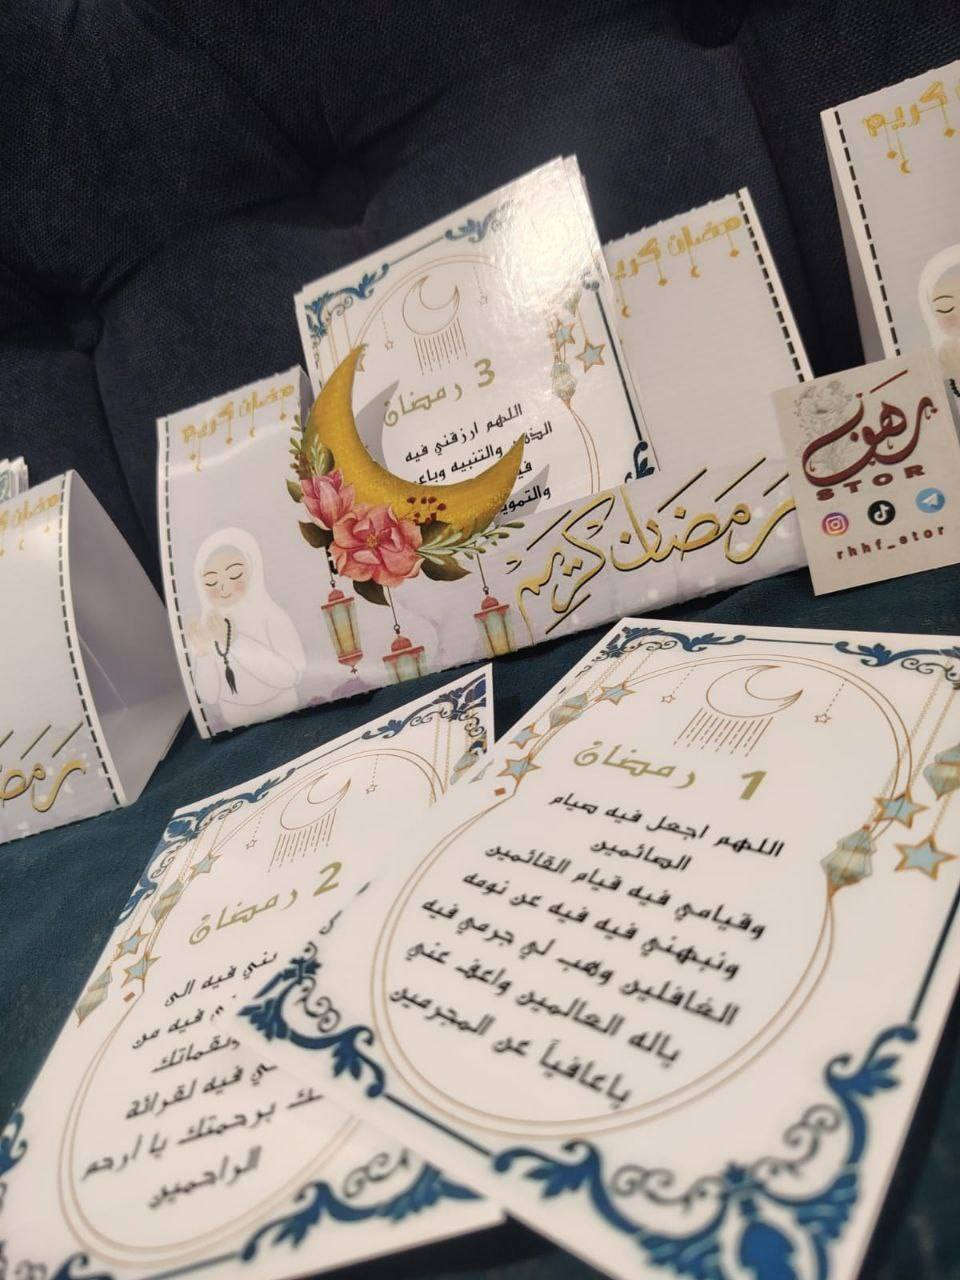 رمضان كريم
كريم
رمضان كريم
3 رمضان
اللهم ارزقني فيه
والتنبيه وباعد
والتمويه
رمضان كريم
رهف
STOR
rhhf_stor
1 رمضان
اللهم اجعل فيه صيام
الصائمين
وقيامي فيه قيام القائمين
ونبهني فيه فيه عن نومه
الغافلين وهب لي جرمي فيه
ياله العالمين واعف عني
ياعافياً عن المجرمين
2 رمضان
فيه الى
فيه من
ونقماتك
فيه لقرائة
برحمتك يا أرحم
الراحمين